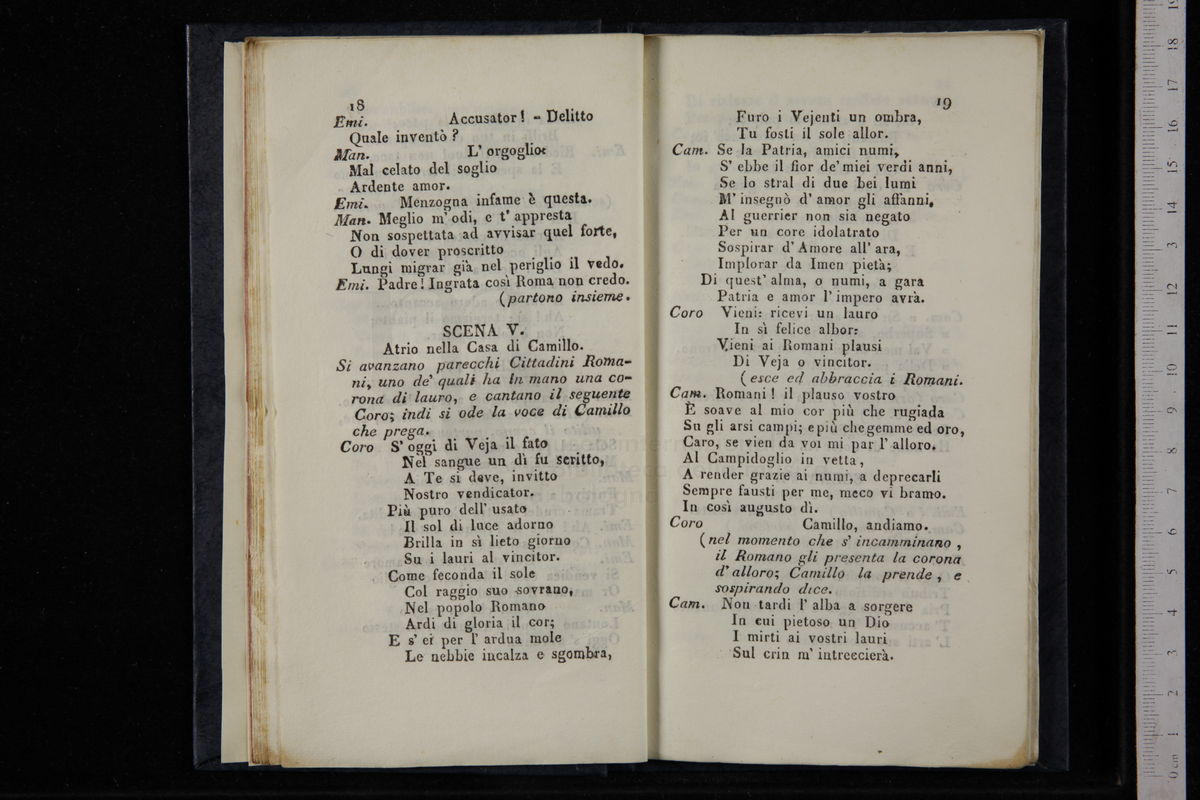 18
Emi. Accusator! - Delitto
Quale inventò?
Man. L' orgoglio:
Mal celato del soglio
Ardente amor.
Emi. Menzogna infame è questa.
Man. Meglio m' odi, e t' appresta
Non sospettata ad avvisar quel forte,
O di dover proscritto
Lungi migrar già nel periglio il vedo.
Emi. Padre! Ingrata così Roma non credo.
(partono insieme.
SCENA V.
Atrio nella Casa di Camillo.
Si avanzano parecchi Cittadini Roma-
ni, uno de' quali ha in mano una co-
rona di lauro, e cantano il seguente
Coro; indi si ode la voce di Camillo
che prega.
Coro S' oggi di Veja il fato
Nel sangue un dì fu scritto,
A Te si deve, invitto
Nostro vendicator.
Più puro dell' usato
Il sol di luce adorno
Brilla in sì lieto giorno
Su i lauri al vincitor.
Come feconda il sole
Col raggio suo sovrano,
Nel popolo Romano
Ardi di gloria il cor;
E s' ei per l' ardua mole
Le nebbie incalza e sgombra,
19
Furo i Vejenti un ombra,
Tu fosti il sole allor.
Cam. Se la Patria, amici numi,
S' ebbe il fior de' miei verdi anni,
Se lo stral di due bei lumi
M' insegnò d' amor gli affanni,
Al guerrier non sia negato
Per un core idolatrato
Sospirar d' Amore all' ara,
Implorar da Imen pietà;
Di quest' alma, o numi, a gara
Patria e amor l' impero avrà.
Coro Vieni: ricevi un lauro
In sì felice albor:
Vieni ai Romani plausi
Di Veja o vincitor.
(esce ed abbraccia i Romani.
Cam. Romani! il plauso vostro
È soave al mio cor più che rugiada
Su gli arsi campi; e più che gemme ed oro,
Caro, se vien da voi mi par l' alloro.
Al Campidoglio in vetta,
A render grazie ai numi, a deprecarli
Sempre fausti per me, meco vi bramo.
In così augusto dì.
Coro Camillo, andiamo.
(nel momento che s' incamminano,
il Romano gli presenta la corona
d' alloro; Camillo la prende, e
sospirando dice.
Cam. Non tardi l' alba a sorgere
In cui pietoso un Dio
I mirti ai vostri lauri
Sul crin m' intreccierà.
0 cm 1 2 3 4 5 6 7 8 9 10 11 12 13 14 15 16 17 18 19